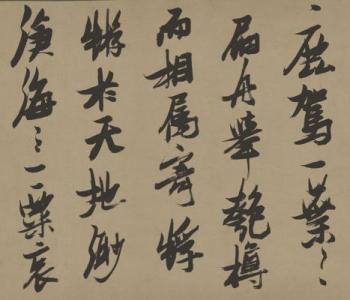 鹿駕一葉之
扁舟舉匏樽
而相屬寄蜉
蝣於天地渺
滄海之一粟哀